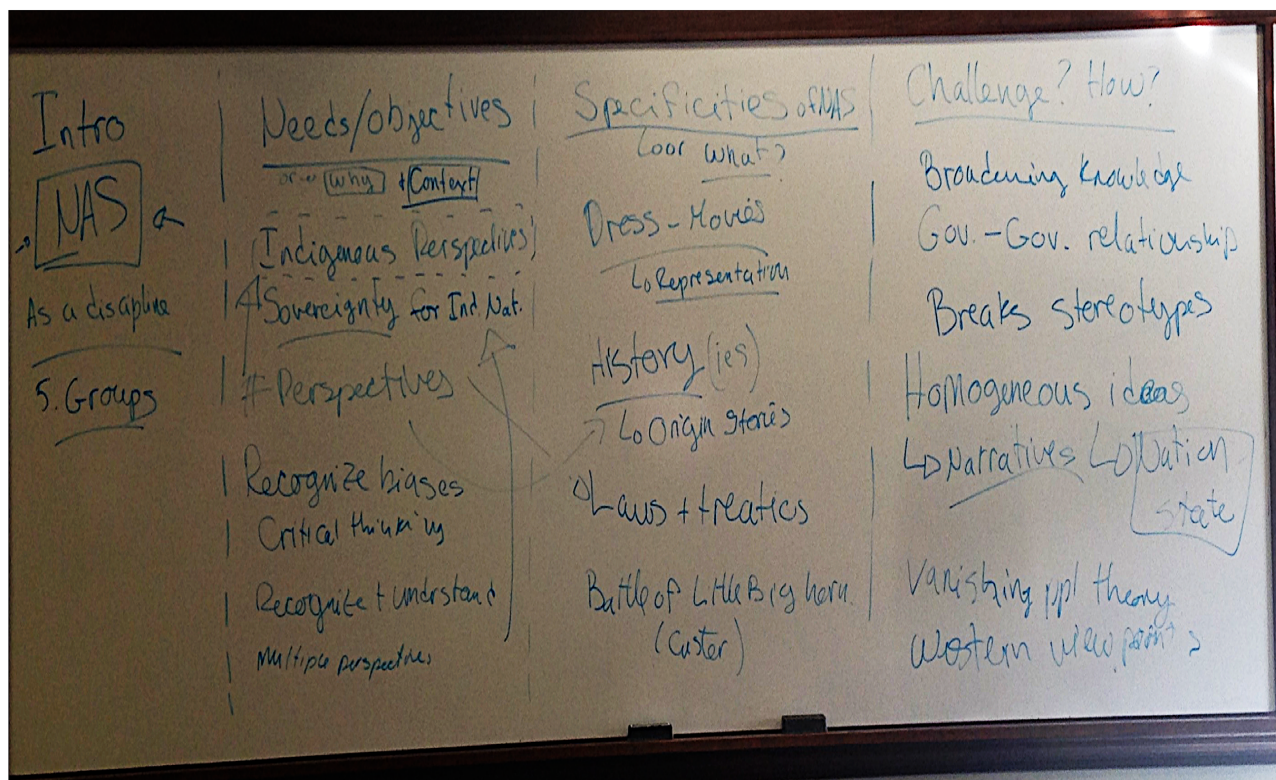 Intro
NAS
As a discipline
5. Groups
Needs/objectives
or → Why + Context
Indigenous Perspectives
Sovereignty for Ind. Nat.
≠ Perspectives
Recognize biases
Critical thinking
Recognize + understand
Multiple perspectives
Specificities of NAS
(or what?
Dress - Movies
↳ Representation
History (ies)
↳ Origin stories
Laws + treaties
Battle of Little Big horn
(Custer)
Challenge? How?
Broadening Knowledge
Gov. - Gov. relationship
Breaks stereotypes
Homogeneous ideas
↳ Narratives ↳ Nation
state
Vanishing ppl theory
Western viewpoints